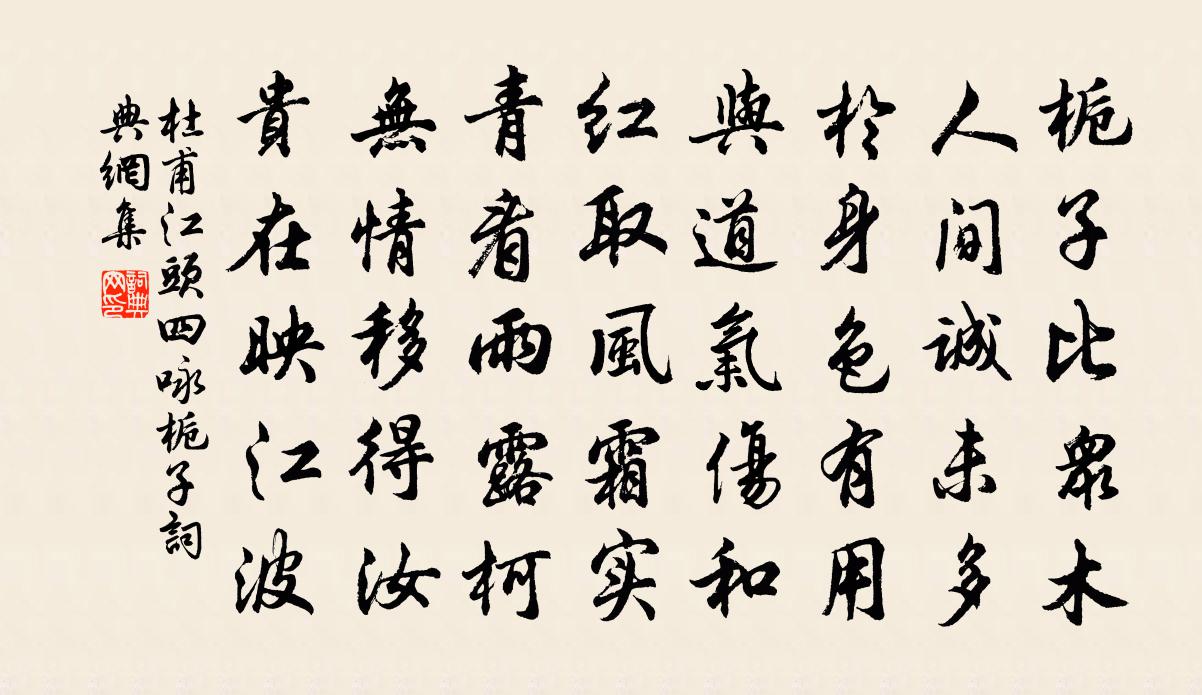 栀子比眾木
人间誠未多
於身色有用
與道氣傷和
红取風霜实
青看雨露柯
無情移得汝
貴在映江波
杜甫江頭四咏栀子詞
典網集
詞典
网印